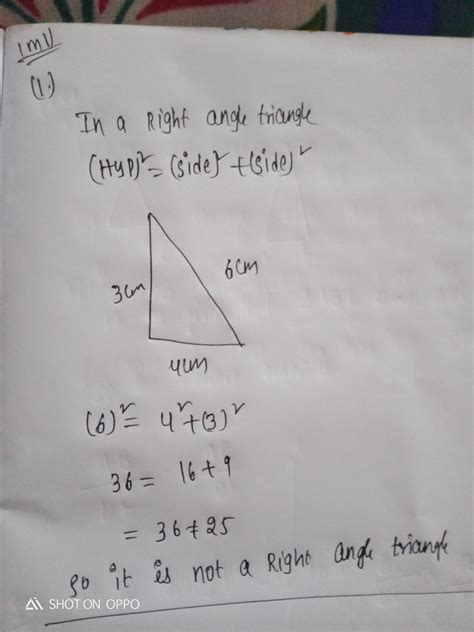 1MV
(1.)
In a Right angle triangle
(HyP)² = (side)² + (side)²
3cm
6cm
4cm
(6)² = 4² + (3)²
36 = 16 + 9
= 36 ≠ 25
so it is not a Right angle triangle
SHOT ON OPPO